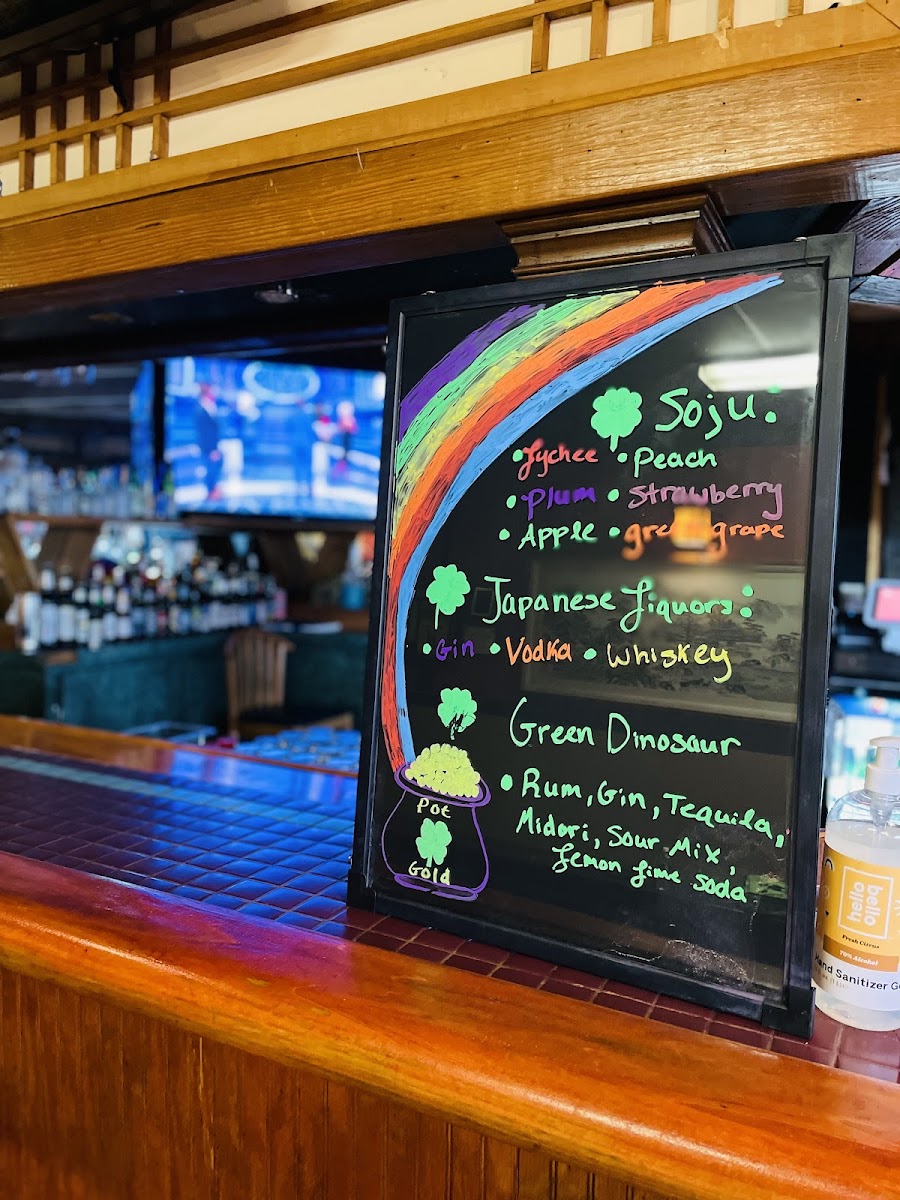 Soju:
• Lychee • Peach
• Plum • Strawberry
• Apple • green grape
Japanese Liquors:
• Gin • Vodka • Whiskey
Green Dinosaur
• Rum, Gin, Tequila,
Midori, Sour Mix,
Lemon Lime Soda
Pot
Gold
hello
bello
Fresh Citrus
70% Alcohol
Hand Sanitizer